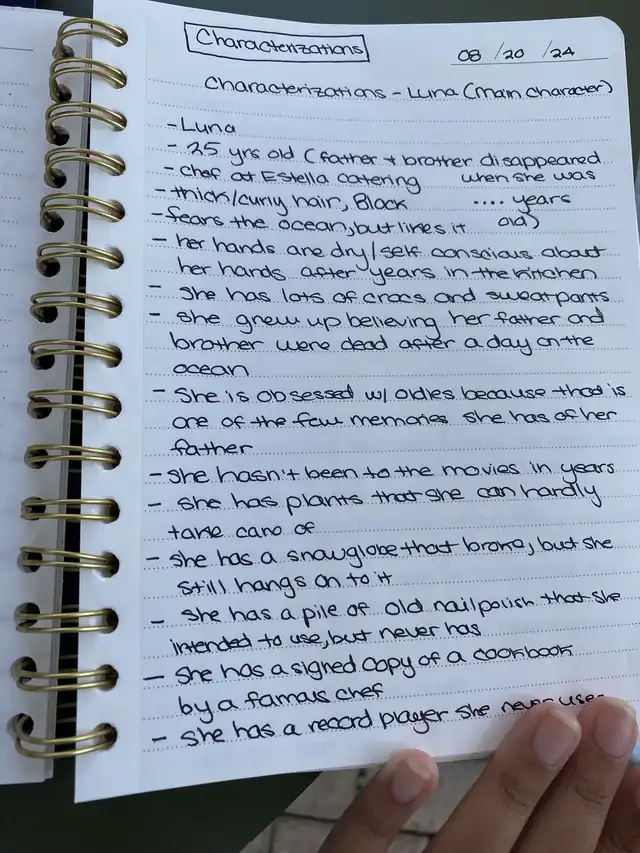 Characterizations
08 / 20 / 24
Characterizations - Luna (Main Character)
- Luna
- 25 yrs old (father + brother disappeared
when she was
.... years
old)
- chef at Estella catering
- thick/curly hair, Black
- fears the ocean, but likes it
- her hands are dry/self conscious about
her hands after years in the kitchen
- she has lots of crocs and sweatpants
- she grew up believing her father and
brother were dead after a day on the
ocean
- She is obsessed w/ oldies because that is
one of the few memories she has of her
father
- she hasn't been to the movies in years
- she has plants that she can hardly
take care of
- she has a snowglobe that broke, but she
still hangs on to it
- she has a pile of old nailpolish that she
intended to use, but never has
- she has a signed copy of a cookbook
by a famous chef
- she has a record player she never uses